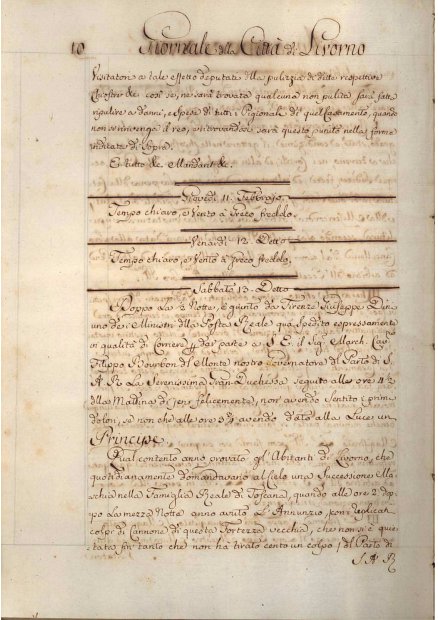 10 Giornale della Città di Livorno
Visitatori a tale effetto deputate della pulizia di dette respettive
Chiostre &c. così se, ne sarà trovata qualcuna non pulita sarà fatta
ripulire a danni, e spese di tutti i Pigionali di quel Casamento, quando
non si rinvenga il reo, e rinvenendosi sarà questo punito nella forma
inditata di sopra.
E in tutto &c. Mandant &c.
Giovedì 11. Febbrajo.
Tempo chiaro, e Vento a Greco freddo.
Venerdì 12. Detto
Tempo chiaro, e Vento a Greco freddo.
Sabbato 13. Detto
Doppo la 2 Notte, è giunto da Firenze Giuseppe
uno de Ministri della Posta Reale quà spedito espressamente
in qualità di Corriere p dar parte a S. E. il Sig. March. Cav
Filippo Bourbon del Monte nostro Governatore del Parto di S.
A R La Serenissima Gran Duchessa seguito alle ore 11 2
della Mattina di jeri felicemente, non avendo sentito i primi
dolori, se non che alle ore 3¾ avendo dato alla Luce un
Principe.
Qual contento anno provato gl'Abitanti di Livorno, che
quotidianamente domandavano al Cielo una Successione Ma
schia nella Famiglia Reale di Toscana, quando alle ore 2 dop
po la mezza Notte anno avuto l'Annunzio, con replicati
colpi di Cannone di questa Fortezza vecchia, che non si è quie
tata fin tanto che non ha tirato cento un colpo, del Parto di
S. A. R